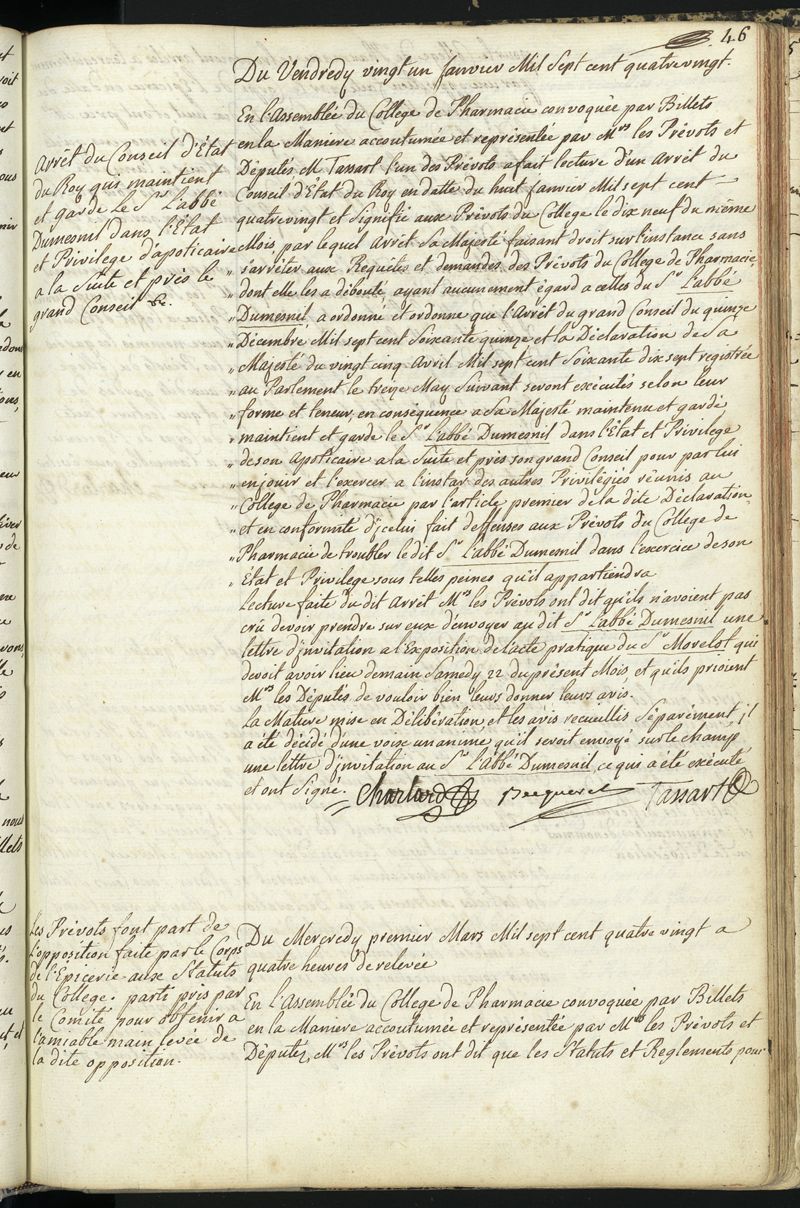 46
Du Vendredy vingt un Janvier Mil Sept cent quatrevingt.
En l'Assemblée du College de Pharmacie convoquée par Billets
en la Maniere accoutumée et représentée par Mrs les Prévots et
Députés M Tassart l'un des Prévots a fait lecture d'un Arrêt du
Conseil d'État du Roy en datte du huit Janvier Mil sept cent
quatrevingt et Signifié aux Prévots du College le dix neuf du même
Mois par lequel Arrêt Sa Majesté faisant droit sur l'instance sans
" s'arrêter aux Requêtes et demandes des Prévots du College de Pharmacie,
" dont elle les a débouté ayant aucunement égard a celles du Sr L'abbé
" Dumesnil, a ordonné et ordonne que l'Arrêt du grand Conseil du quinze
" Décembre Mil sept cent Soixante quinze et la Déclaration de Sa
" Majesté du vingt cinq Avril Mil sept cent Soixante dix sept registrée
" au Parlement le treize May Suivant seront exécutés selon leur
" forme et teneur, en conséquence a Sa Majesté maintenu et gardé
" maintient et garde le Sr L'abbé Dumesnil dans l'État et Privilege
" de son Apoticaire a la Suite et près son grand Conseil pour par lui
" en jouir et l'exercer a l'instar des autres Privilégiés réunis au
" College de Pharmacie par l'article premier de la dite Déclaration,
" et en conformité d'icelui fait deffenses aux Prévots du College de
" Pharmacie de troubler le dit Sr L'abbé Dumesnil dans l'exercice de son
" Etat et Privilege sous telles peines qu'il appartiendra
Lecture faite du dit Arrêt Mrs les Prévots ont dit qu'ils n'avoient pas
crû devoir prendre sur eux d'envoyer au dit Sr L'abbé Dumesnil une
lettre d'invitation a l'Exposition de l'acte pratique du Sr Morelot qui
devoit avoir lieu demain Samedy 22 du présent Mois, et qu'ils prioient
Mrs les Députés de vouloir bien leurs donner leurs avis.
La Matiere mise en Délibération et les avis recueillis Séparément, il
a été décidé d'une voix unanime qu'il seroit envoyé sur le champ
une lettre d'invitation au Sr L'abbé Dumesnil, ce qui a été exécuté
et ont Signé.
Charlard Becqueret Tassart
Arrêt du Conseil d'État
du Roy qui maintient
et garde le Sr L'abbé
Dumesnil dans l'État
et Privilege d'apoticaire
a la Suite et près le
grand Conseil &c.
Du Mercredy premier Mars Mil sept cent quatre vingt a
quatre heures de relevée
En l'Assemblée du College de Pharmacie convoquée par Billets
en la Maniere accoutumée et représentée par Mrs les Prévots et
Députés, Mrs les Prévots ont dit que les Statuts et Reglements pour
Les Prévots font part de
l'opposition faite par le Corps
de l'Epicerie aux Statuts
du College. partis pris par
le Comité pour obtenir a
l'amiable main levée de
la dite opposition.